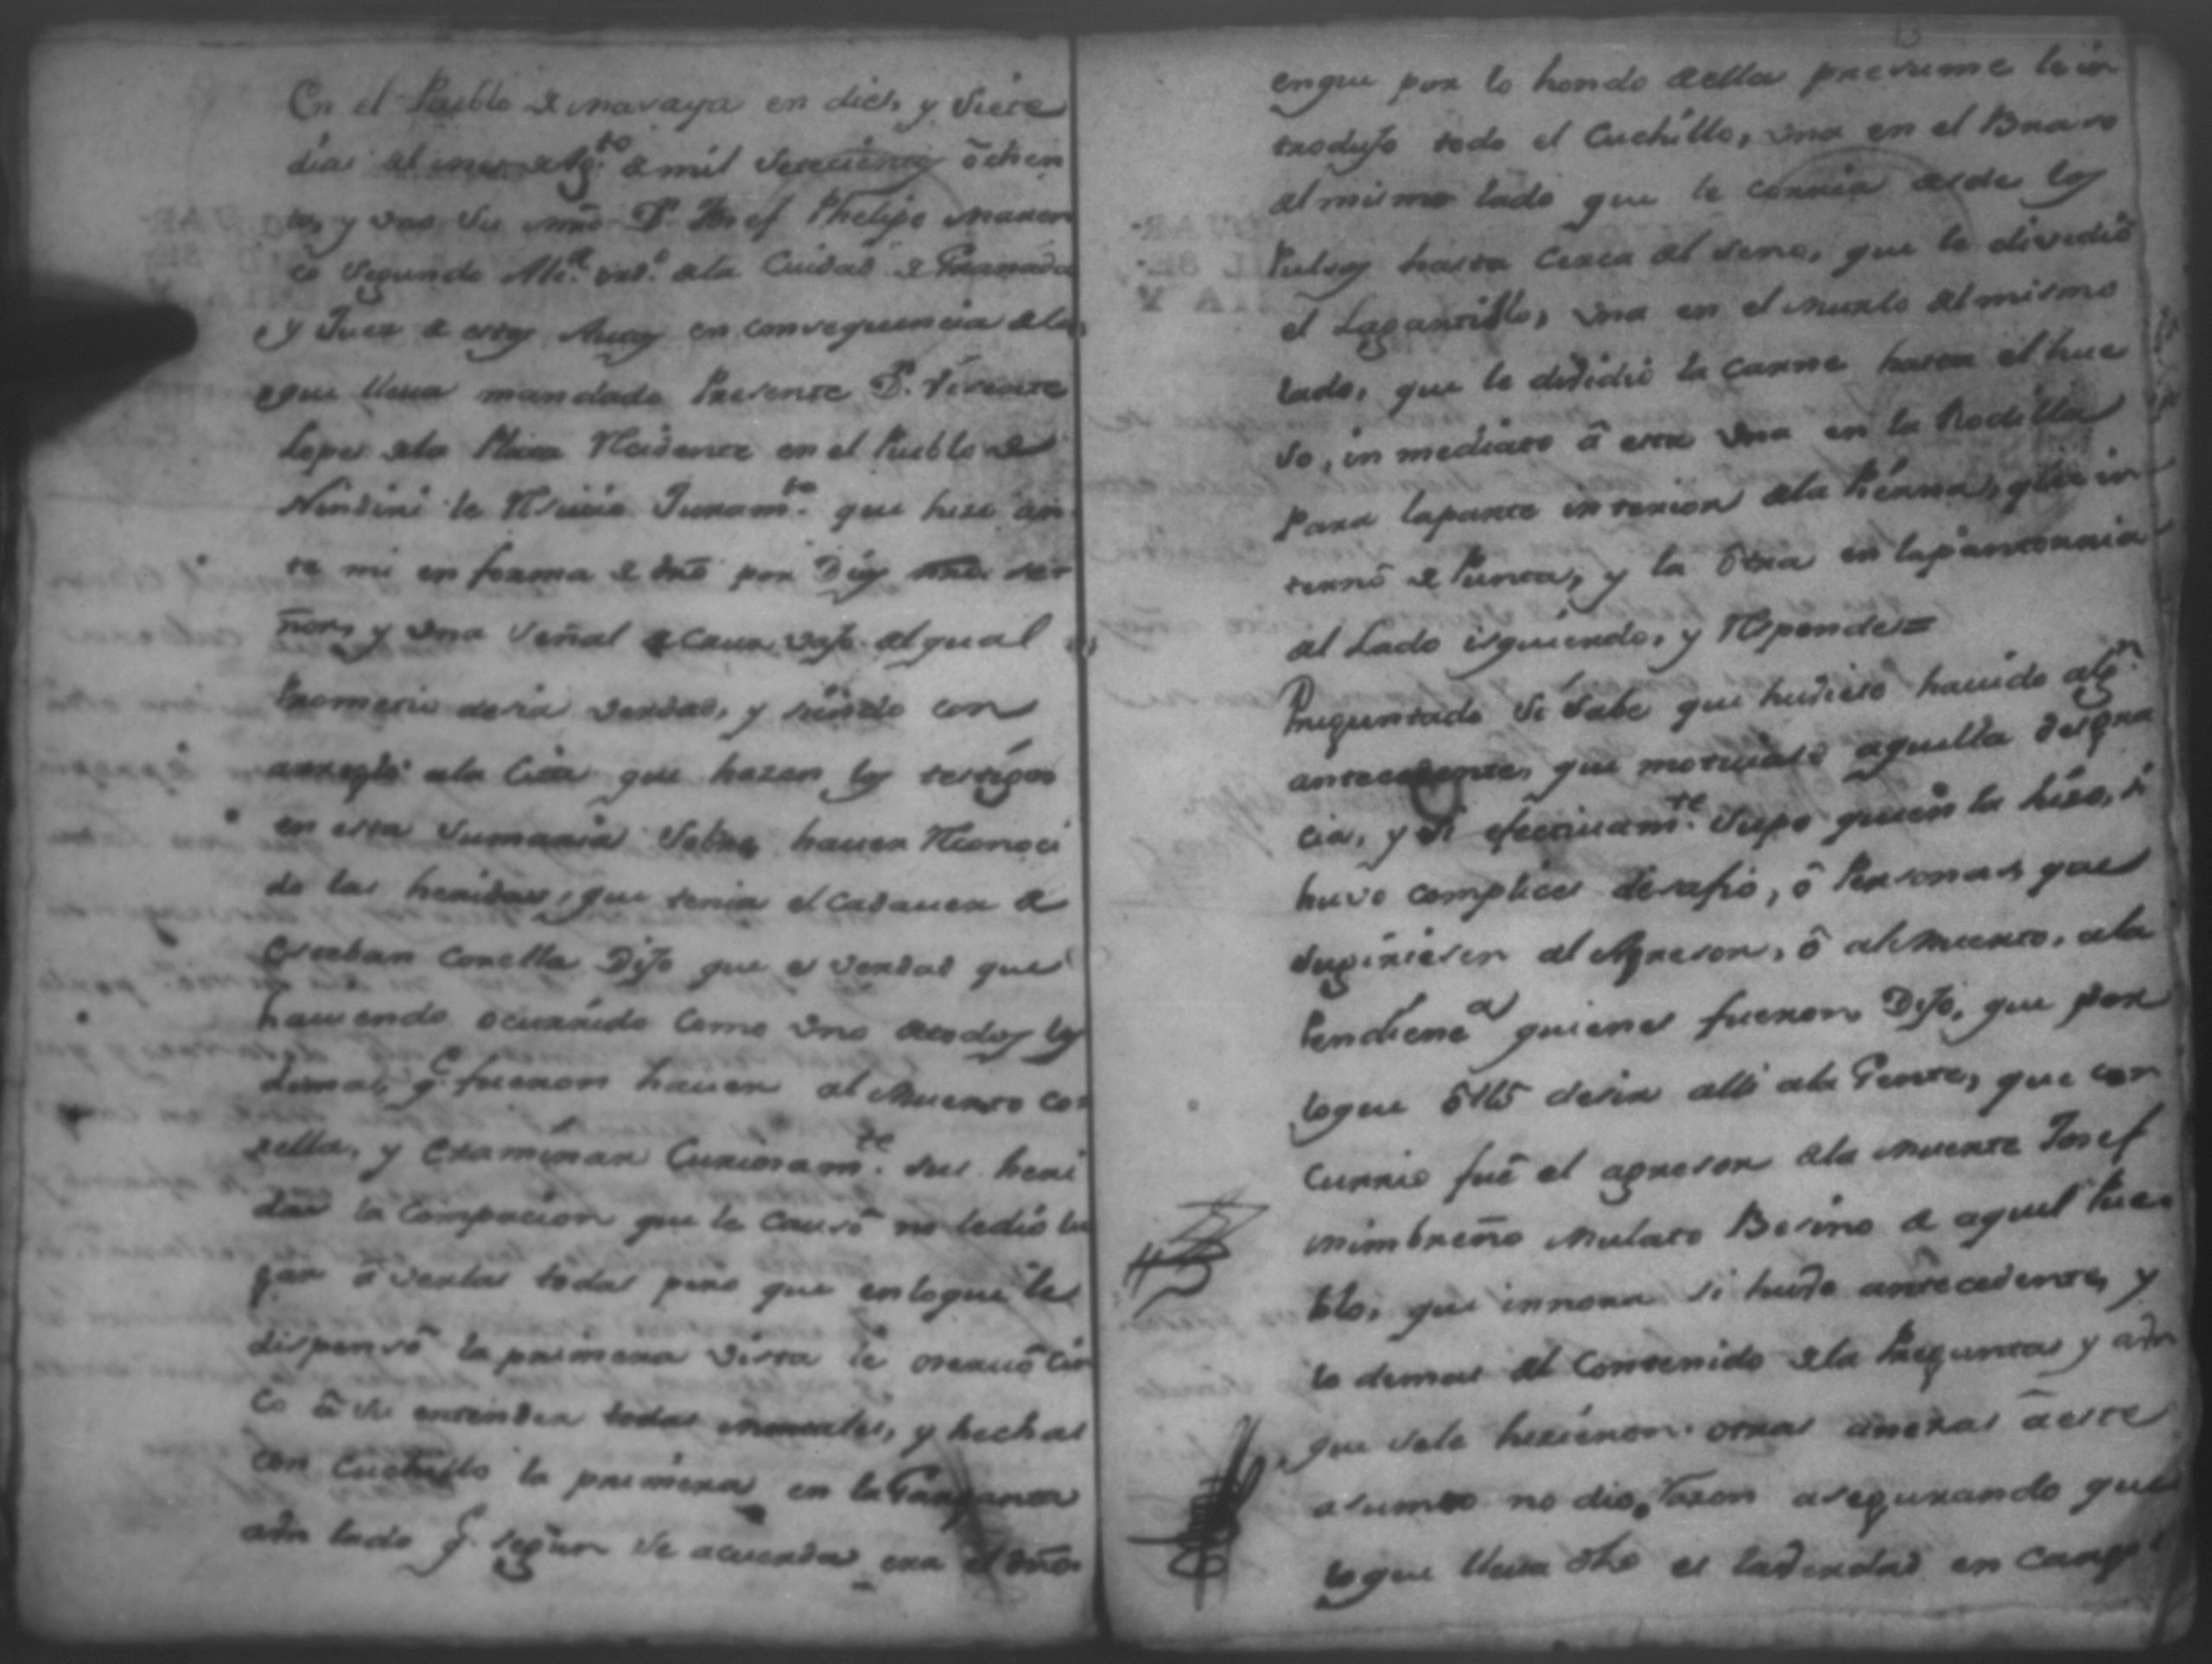 En el Pueblo de masaya en dies, y Siete
dias del mes de Ag.to de mil Setecientos ôchen
ta, y uno Su mrd D.n Josef Phelipe
co Segundo Alc.e ord.o dela Cuidad de Granada
y Juez de estos Autos en consequencia delo
que lleua mandado Presente D.n Visente
Lopes dela Plata Recidente en el Pueblo de
Nindiri le Reciuio Juram.to que hizo an
te mi en forma de dro por Dios nro. se
ñor, y Una Señal de Cruz vajo del qual
Prometio desir verdad, y siendo con
arreglo ala Cita que hazen los testigos
en esta Sumaria Sobre hauer Reconoci
do las heridas, que tenia el cadauer de
Esteban Corella Dijo que es verdad que
hauiendo ocurrido Como Uno de todos los
demas, q.e fueron hauer al Muerto Co
rella, y Examinar Curiosam.te sus heri
das la Compacion que le Causô no ledió lu
gar â verlas todas pero que enloque le
dispensô la primera Vista le oseruô Cin
co â su entender todas mortales, y hechas
con Cuchillo la primera en la Garganta
aun lado q.e segun se acuerda era el dro.
13
enque por lo hondo della presume le in
trodujo todo el Cuchillo, Una en el Braso
del mismo lado que le corria desde los
Pulsos hasta Cerca del seno, que le dividiô
el Lagartillo, Una en el Muslo del mismo
lado, que le dividió la carne hasta el hue
so, in mediato â esta Una en la Rodilla
Para laparte interior dela Pierna, q.e la in
ternô de Punta, y la ôtra en lapantorria
del Lado isquierdo, y Responde=
Preguntado Si Sabe que huviese hauido alg.n
antecedente, que motiuase aquella desgra
cia, y si efectiuam.te Supo quien la hiso, si
huvo complices desafio, ô Personas que
sugiriesen al Agresor, ô al Muerto, ala
Pendiencia quienes fueron Dijo, que por
loque ôyó desir alli ala Gente, que con
currio fuê el agresor dela muerte Josef
mimbreño Mulato Besino de aquel Pue
blo, que innora si huvo antecedente, y
lo demas del Contenido dela Pregunta y aun
que sele hizieron otras anexas âeste
asumto no dio razon asegurando que
loque lleua dho es laverdad en cargo